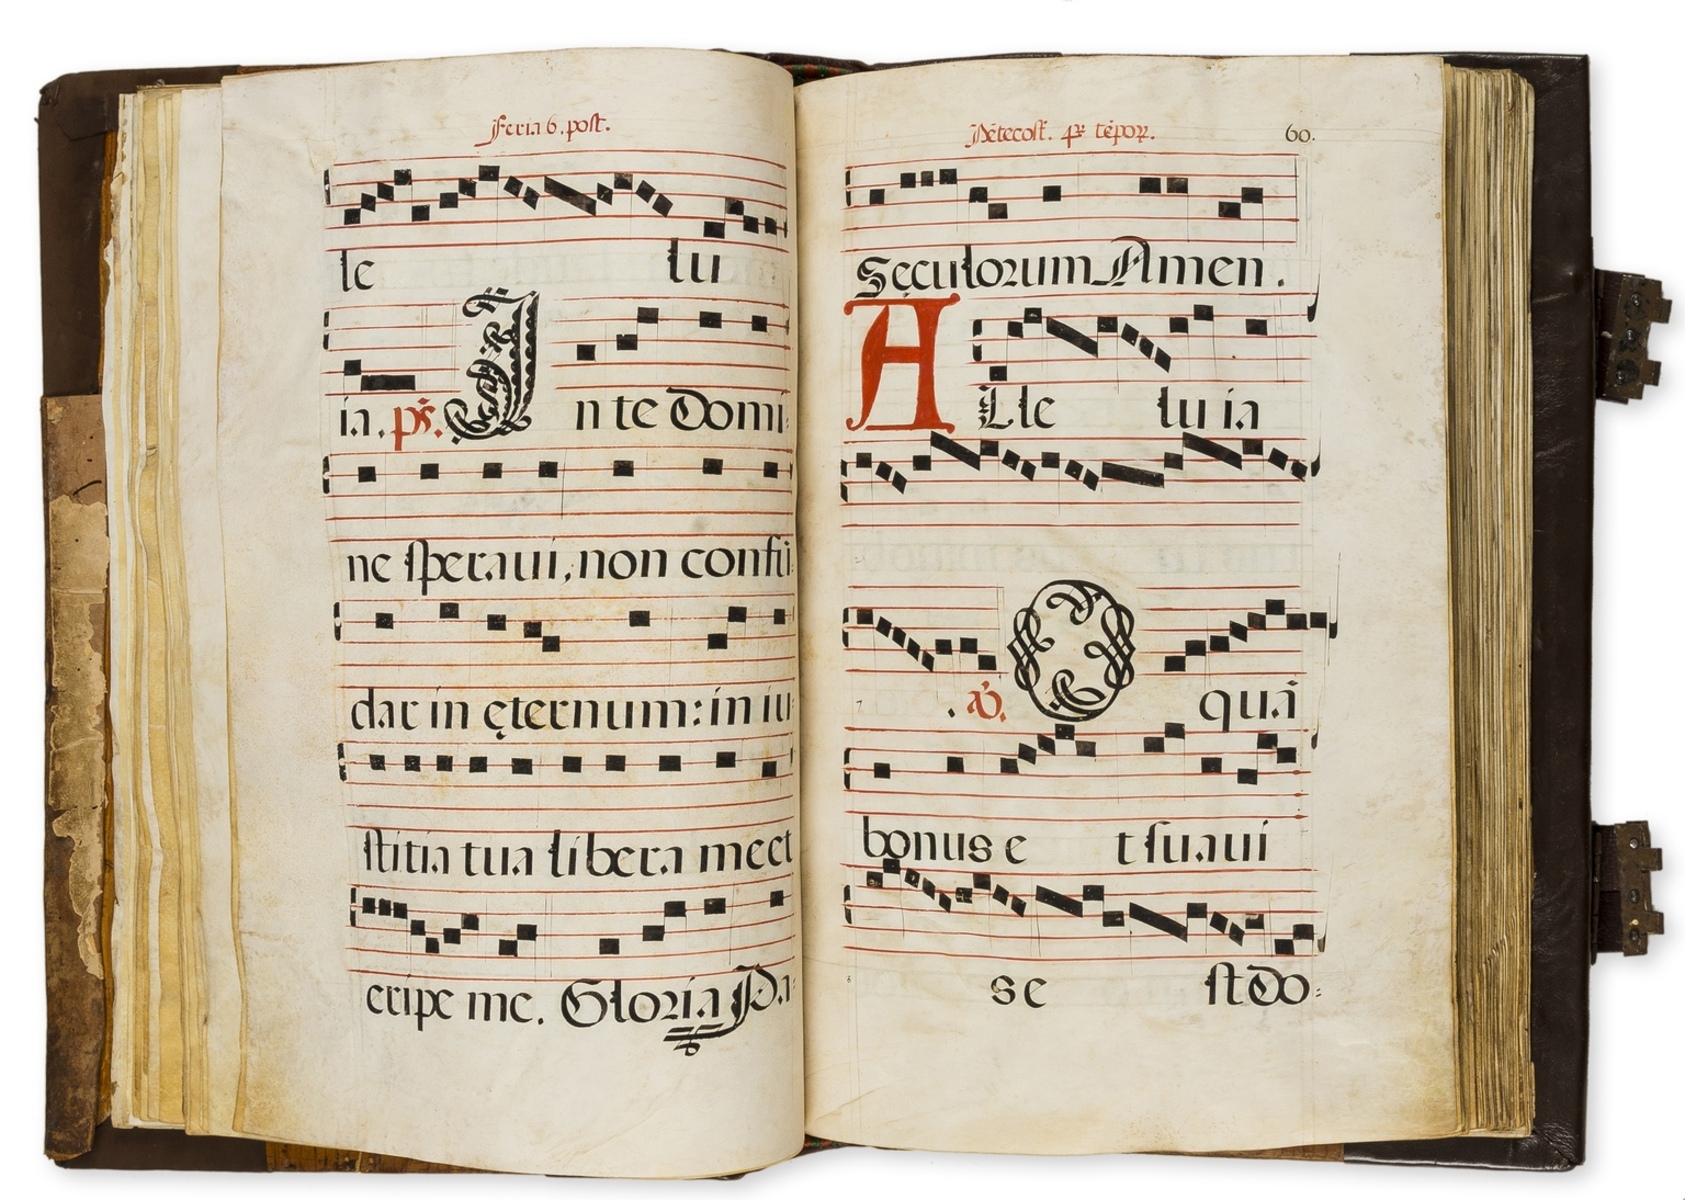 Feria 6. post.
le lu
ia. ps. In te Domi-
ne speraui, non confū
dar in ęternum: in iu
stitia tua libera me et
eripe me. Gloria Pa-
Pētecost. 4r. tēpor. 60.
seculorum Amen.
A Lle lu ia
. v. O quā
bonus e t suaui
s e st Do-